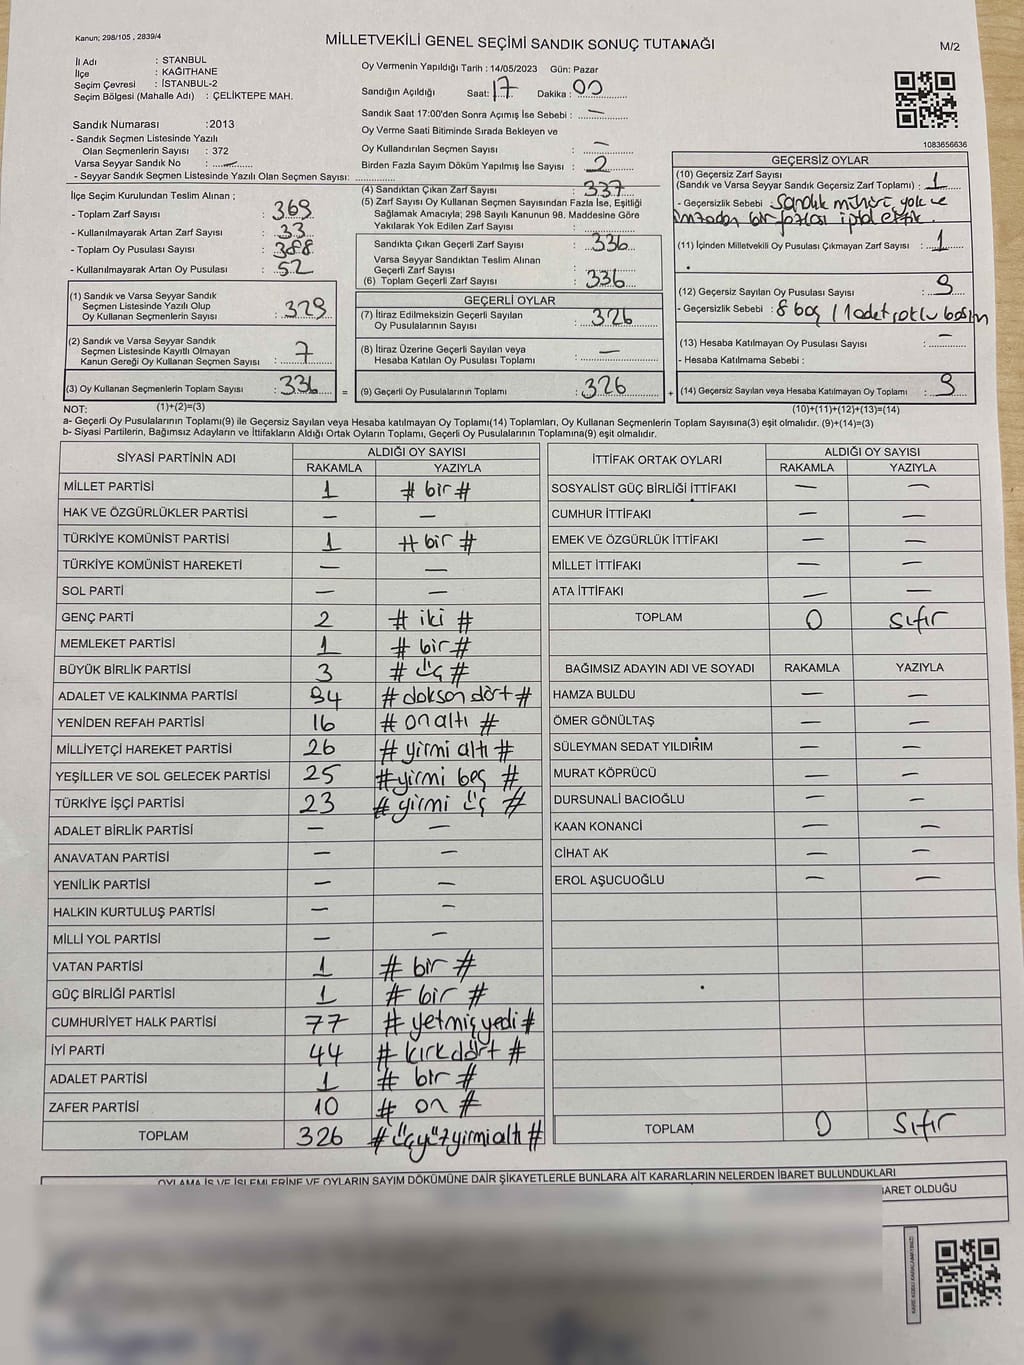 Kanun; 298/105 , 2839/4
MİLLETVEKİLİ GENEL SEÇİMİ SANDIK SONUÇ TUTANAĞI
M/2
İl Adı : STANBUL
İlçe : KAĞITHANE
Seçim Çevresi : İSTANBUL-2
Seçim Bölgesi (Mahalle Adı) : ÇELİKTEPE MAH.
Sandık Numarası :2013
- Sandık Seçmen Listesinde Yazılı
Olan Seçmenlerin Sayısı : 372
Varsa Seyyar Sandık No : —
- Seyyar Sandık Seçmen Listesinde Yazılı Olan Seçmen Sayısı:
Oy Vermenin Yapıldığı Tarih : 14/05/2023 Gün: Pazar
Sandığın Açıldığı Saat: 17 Dakika : 00
Sandık Saat 17:00'den Sonra Açımış İse Sebebi : —
Oy Verme Saati Bitiminde Sırada Bekleyen ve
Oy Kullandırılan Seçmen Sayısı : —
Birden Fazla Sayım Döküm Yapılmış İse Sayısı : 2
1083656636
İlçe Seçim Kurulundan Teslim Alınan ;
- Toplam Zarf Sayısı : 369
- Kullanılmayarak Artan Zarf Sayısı : 33
- Toplam Oy Pusulası Sayısı : 388
- Kullanılmayarak Artan Oy Pusulası : 52
(1) Sandık ve Varsa Seyyar Sandık
Seçmen Listesinde Yazılı Olup
Oy Kullanan Seçmenlerin Sayısı : 329
(2) Sandık ve Varsa Seyyar Sandık
Seçmen Listesinde Kayıtlı Olmayan
Kanun Gereği Oy Kullanan Seçmen Sayısı : 7
(3) Oy Kullanan Seçmenlerin Toplam Sayısı : 336 =
(1)+(2)=(3)
(4) Sandıktan Çıkan Zarf Sayısı : 337
(5) Zarf Sayısı Oy Kullanan Seçmen Sayısından Fazla İse, Eşitliği
Sağlamak Amacıyla; 298 Sayılı Kanunun 98. Maddesine Göre
Yakılarak Yok Edilen Zarf Sayısı :
Sandıkta Çıkan Geçerli Zarf Sayısı : 336
Varsa Seyyar Sandıktan Teslim Alınan
Geçerli Zarf Sayısı :
(6) Toplam Geçerli Zarf Sayısı : 336
GEÇERLİ OYLAR
(7) İtiraz Edilmeksizin Geçerli Sayılan
Oy Pusulalarının Sayısı : 326
(8) İtiraz Üzerine Geçerli Sayılan veya
Hesaba Katılan Oy Pusulası Toplamı : —
(9) Geçerli Oy Pusulalarının Toplamı : 326 +
GEÇERSİZ OYLAR
(10) Geçersiz Zarf Sayısı
(Sandık ve Varsa Seyyar Sandık Geçersiz Zarf Toplamı) : 1
- Geçersizlik Sebebi : Sandık mührü yok ve
imzadan bir fazlası iptal ettik.
(11) İçinden Milletvekili Oy Pusulası Çıkmayan Zarf Sayısı : 1
(12) Geçersiz Sayılan Oy Pusulası Sayısı : 9
- Geçersizlik Sebebi : 8 boş / 1 adet çoklu basım
(13) Hesaba Katılmayan Oy Pusulası Sayısı : —
- Hesaba Katılmama Sebebi :
(14) Geçersiz Sayılan veya Hesaba Katılmayan Oy Toplamı : 9
(10)+(11)+(12)+(13)=(14)
NOT:
a- Geçerli Oy Pusulalarının Toplamı(9) ile Geçersiz Sayılan veya Hesaba katılmayan Oy Toplamı(14) Toplamları, Oy Kullanan Seçmenlerin Toplam Sayısına(3) eşit olmalıdır. (9)+(14)=(3)
b- Siyasi Partilerin, Bağımsız Adayların ve İttifakların Aldığı Ortak Oyların Toplamı, Geçerli Oy Pusulalarının Toplamına(9) eşit olmalıdır.
SİYASİ PARTİNİN ADI ALDIĞI OY SAYISI
RAKAMLA YAZIYLA
MİLLET PARTİSİ 1 # bir #
HAK VE ÖZGÜRLÜKLER PARTİSİ — —
TÜRKİYE KOMÜNİST PARTİSİ 1 # bir #
TÜRKİYE KOMÜNİST HAREKETİ — —
SOL PARTİ — —
GENÇ PARTİ 2 # iki #
MEMLEKET PARTİSİ 1 # bir #
BÜYÜK BİRLİK PARTİSİ 3 # üç #
ADALET VE KALKINMA PARTİSİ 94 # doksan dört #
YENİDEN REFAH PARTİSİ 16 # on altı #
MİLLİYETÇİ HAREKET PARTİSİ 26 # yirmi altı #
YEŞİLLER VE SOL GELECEK PARTİSİ 25 # yirmi beş #
TÜRKİYE İŞÇİ PARTİSİ 23 # yirmi üç #
ADALET BİRLİK PARTİSİ — —
ANAVATAN PARTİSİ — —
YENİLİK PARTİSİ — —
HALKIN KURTULUŞ PARTİSİ — —
MİLLİ YOL PARTİSİ — —
VATAN PARTİSİ 1 # bir #
GÜÇ BİRLİĞİ PARTİSİ 1 # bir #
CUMHURİYET HALK PARTİSİ 77 # yetmiş yedi #
İYİ PARTİ 44 # kırk dört #
ADALET PARTİSİ 1 # bir #
ZAFER PARTİSİ 10 # on #
TOPLAM 326 # üçyüz yirmi altı #
İTTİFAK ORTAK OYLARI ALDIĞI OY SAYISI
RAKAMLA YAZIYLA
SOSYALİST GÜÇ BİRLİĞİ İTTİFAKI — —
CUMHUR İTTİFAKI — —
EMEK VE ÖZGÜRLÜK İTTİFAKI — —
MİLLET İTTİFAKI — —
ATA İTTİFAKI — —
TOPLAM 0 sıfır
BAĞIMSIZ ADAYIN ADI VE SOYADI RAKAMLA YAZIYLA
HAMZA BULDU — —
ÖMER GÖNÜLTAŞ — —
SÜLEYMAN SEDAT YILDIRIM — —
MURAT KÖPRÜCÜ — —
DURSUNALİ BACIOĞLU — —
KAAN KONANCİ — —
CİHAT AK — —
EROL AŞUCUOĞLU — —
TOPLAM 0 sıfır
OYLAMA İŞ VE İŞLEMLERİNE VE OYLARIN SAYIM DÖKÜMÜNE DAİR ŞİKAYETLERLE BUNLARA AİT KARARLARIN NELERDEN İBARET BULUNDUKLARI
BARET OLDUĞU